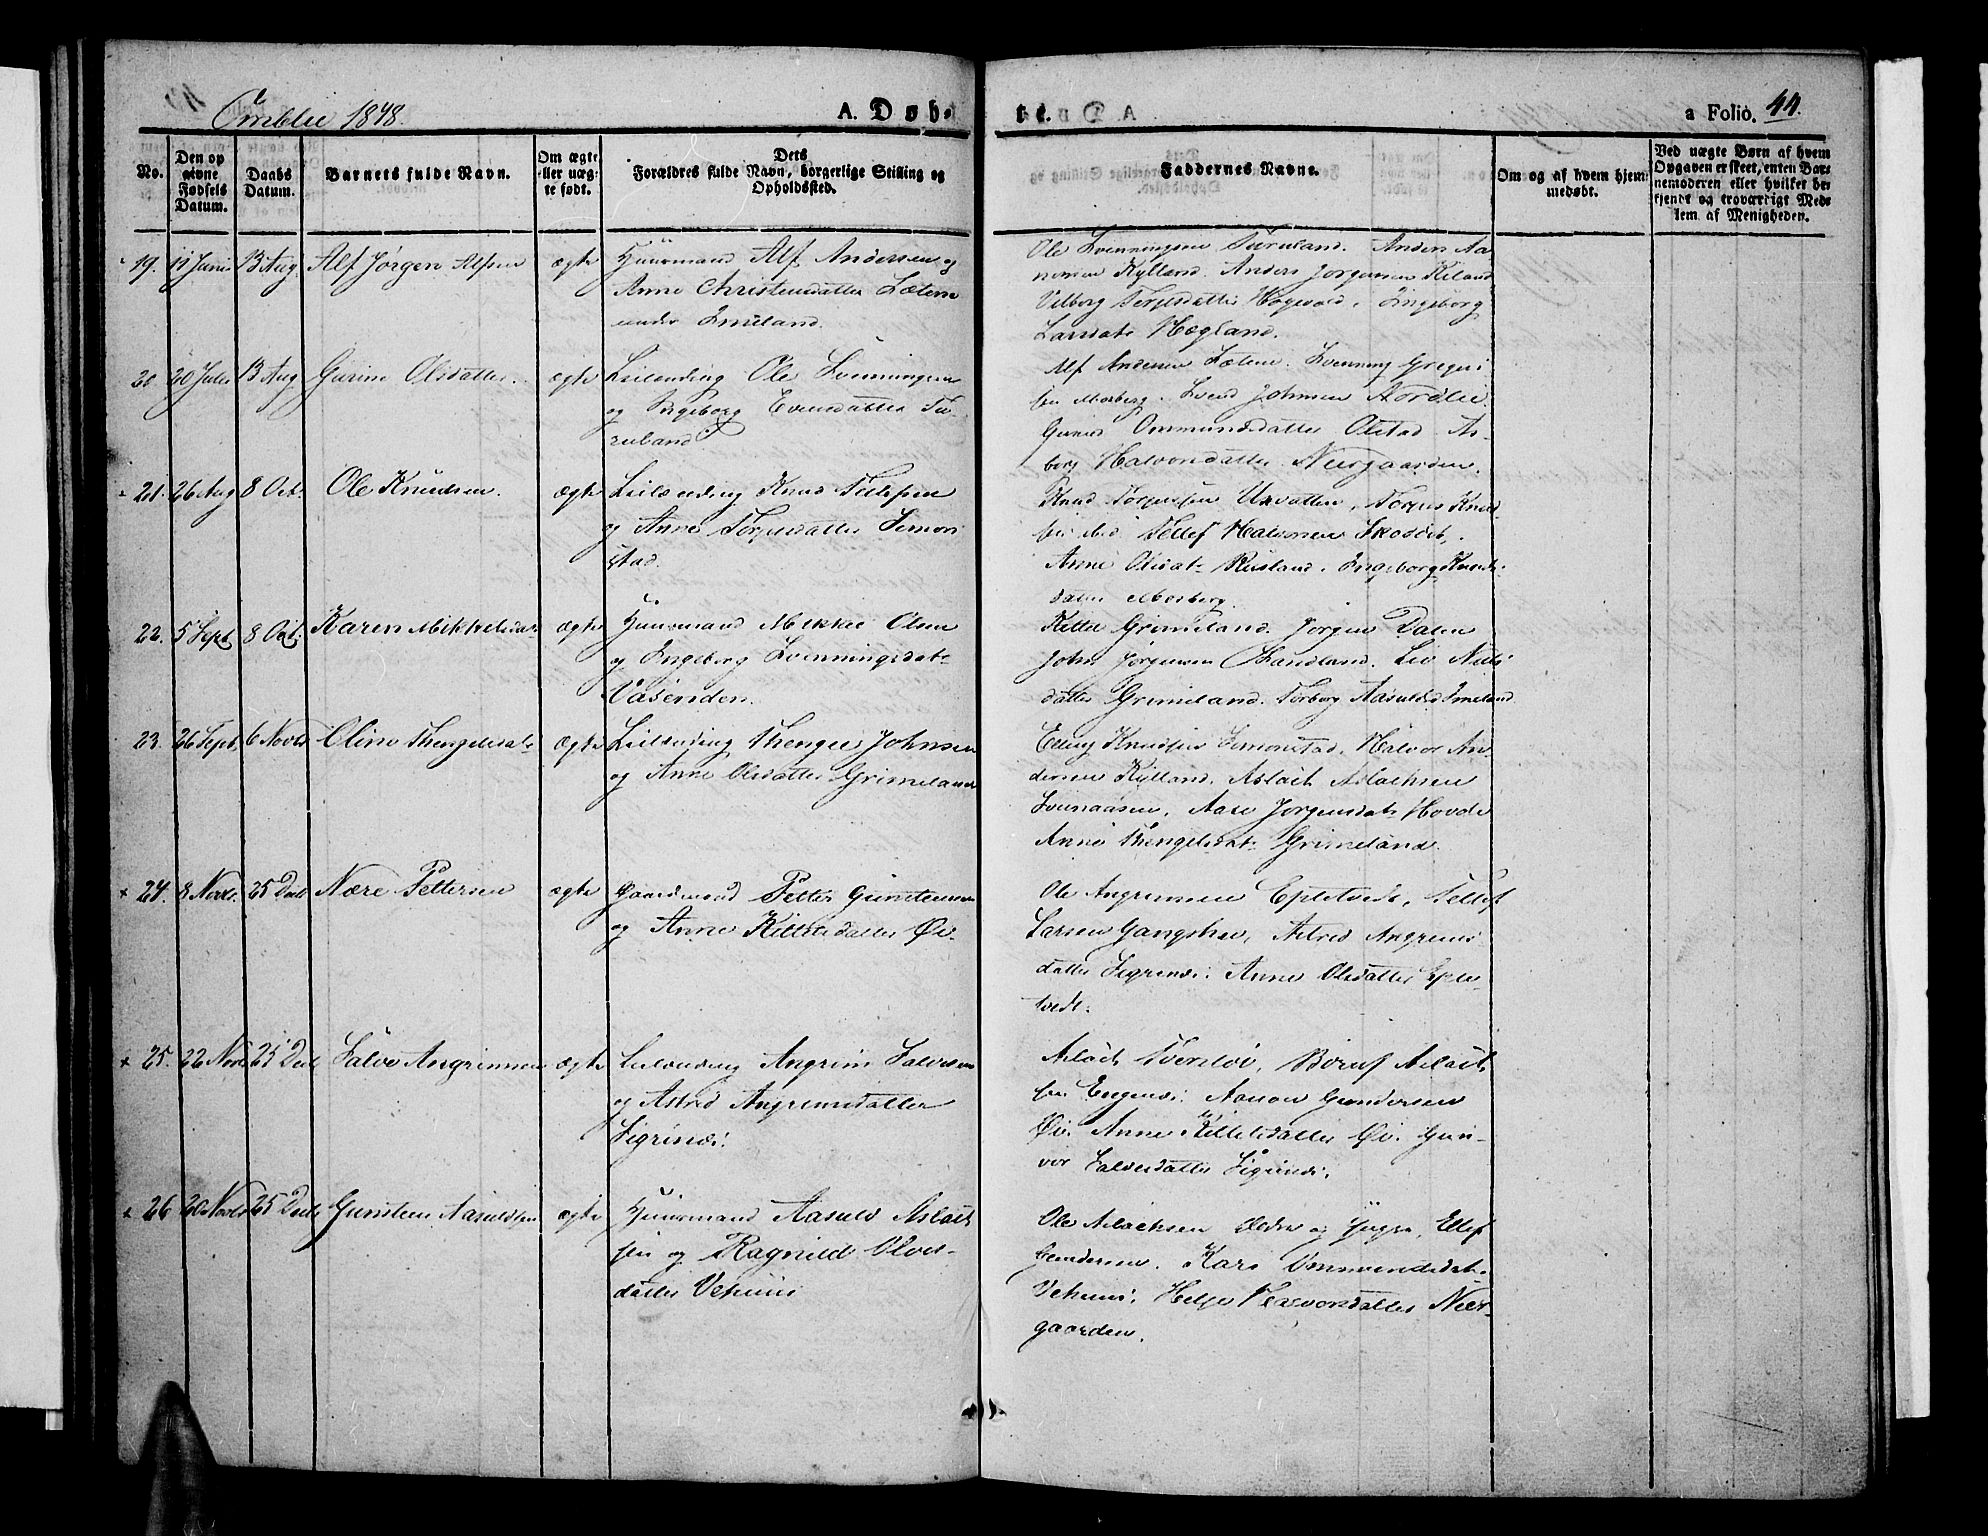 Omblie 1848.
A. Døb-
te.
a Folio. 44.
No.
Den op
givne
Fødsels
Datum.
Daabs
Datum.
Barnets fulde Navn.
Om ægte
eller uæg-
te født.
Dets
Forældres fulde Navn, borgerlige Stilling og
Opholdssted.
Faddernes Navne.
Om og af hvem hjem-
medøbt.
Ved uægte Børn af hvem
Opgaven er skeet, enten Bar-
nemoderen eller hvilket be-
kjendt og troværdigt Med-
lem af Menigheden.
19. 11 Juni 13 Aug Alf Jörgen Alfsen ægte Huusmand Alf Andersen og
Anne Christensdatter
under Imeland.
Ole Svenningsen Tureland. Anders Aa-
nonsen Kylland. Anders Jörgensen Kiland
Vilborg Terjesdatter Ingeborg
Larsdatr Hægland.
20 20 Julii 13 Aug Gurine Olsdatter. ægte Leilænding Ole Svenningsen
og Ingeborg Evensdatter Tu-
reland
Alf Andersen Svenning Gregeri
sen Mosberg. Svend Johnsen Nordlie
Gunild Ommundsdatter Olstad As-
borg Halvorsdatter Neergaarden.
21. 26 Aug 8 Oct. Ole Knudsen. ægte Leilænding Knud Tellefsen
og Anne Torjusdatter Simon
stad.
Knud Torjussen Uvatten, Torjus Knud-
sen ibid Tellef Halvorsen
Anne Olsdatr Rusland. Ingeborg Knuds-
datter Mosberg.
22. 5 Sept. 8 Oct. Karen Mikkelsdr ægte Huusmand Mikkel Olsen
og Ingeborg Svenningsdatr
Vasenden.
Kittel Grimeland. Jörgen Dalen
John Jörgensen Lauvland. Liv Niels
datter Grimeland. Torborg Aasuldsd Imeland
23. 26 Sept. 6 Novbr Oline Thengelsdatr ægte Leilænding Thengel Johnsen
og Anne Olsdatter Grimeland
Elling Knudsen Simonstad. Halvor An-
dersen Kylland. Aslack Aslachsen
Svenaasen, Aase Jörgensdatr Hovde
Anne Thengelsdatr Grimeland.
24. 8 Novbr. 25 Decbr Nære Pettersen ægte Gaardmand Petter Gunstensen
og Anne Kittelsdatter Öi-
Ole Angrimsen Epletvedt, Tellef
Larsen Gangshei, Astrid Angrims
datter Sigrinæs. Anne Olsdatter Eple-
tvedt.
25. 22 Novbr 25 Decbr Salve Angrimsen ægte Leilænding Angrim Salvesen
og Astrid Angrimsdatter
Sigrinæs.
Aslack Aslack
sen Aanon Gundersen
Öi. Anne Kittelsdatter Öi. Gun-
vor Salvesdatter Sigrinæs.
26 20 Novbr 25 Decbr Gunsten Aasuldsen ægte Huusmand Aasuld Aslack
sen og Ragnild Olves-
datter Vehuus
Ole Aslachsen ældre og yngre, Ellef
Gundersen. Kari Ommundsdatr
Vehuus, Helje Halvorsdatter Neer-
gaarden.